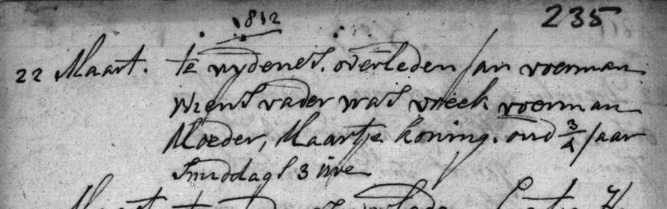 1812
235
22 Maart. te nydenes. overleden Jan voerman
wiens vader was vreek voerman
Moeder, Maartje koning. oud 3/4 Jaar
smiddags 3 ure
Maart